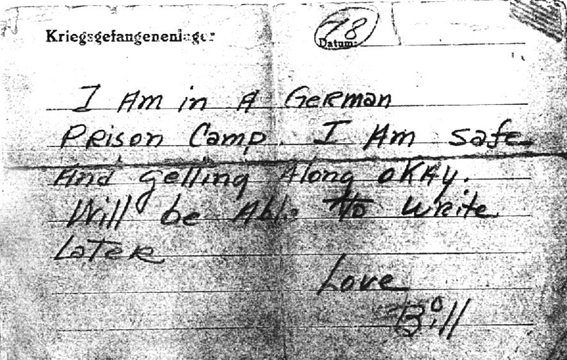 Kriegsgefangenenlager
78
Datum:
I Am in A German
Prison Camp. I Am safe
And getting Along okay.
Will be Able to write
Later
Love
Bill